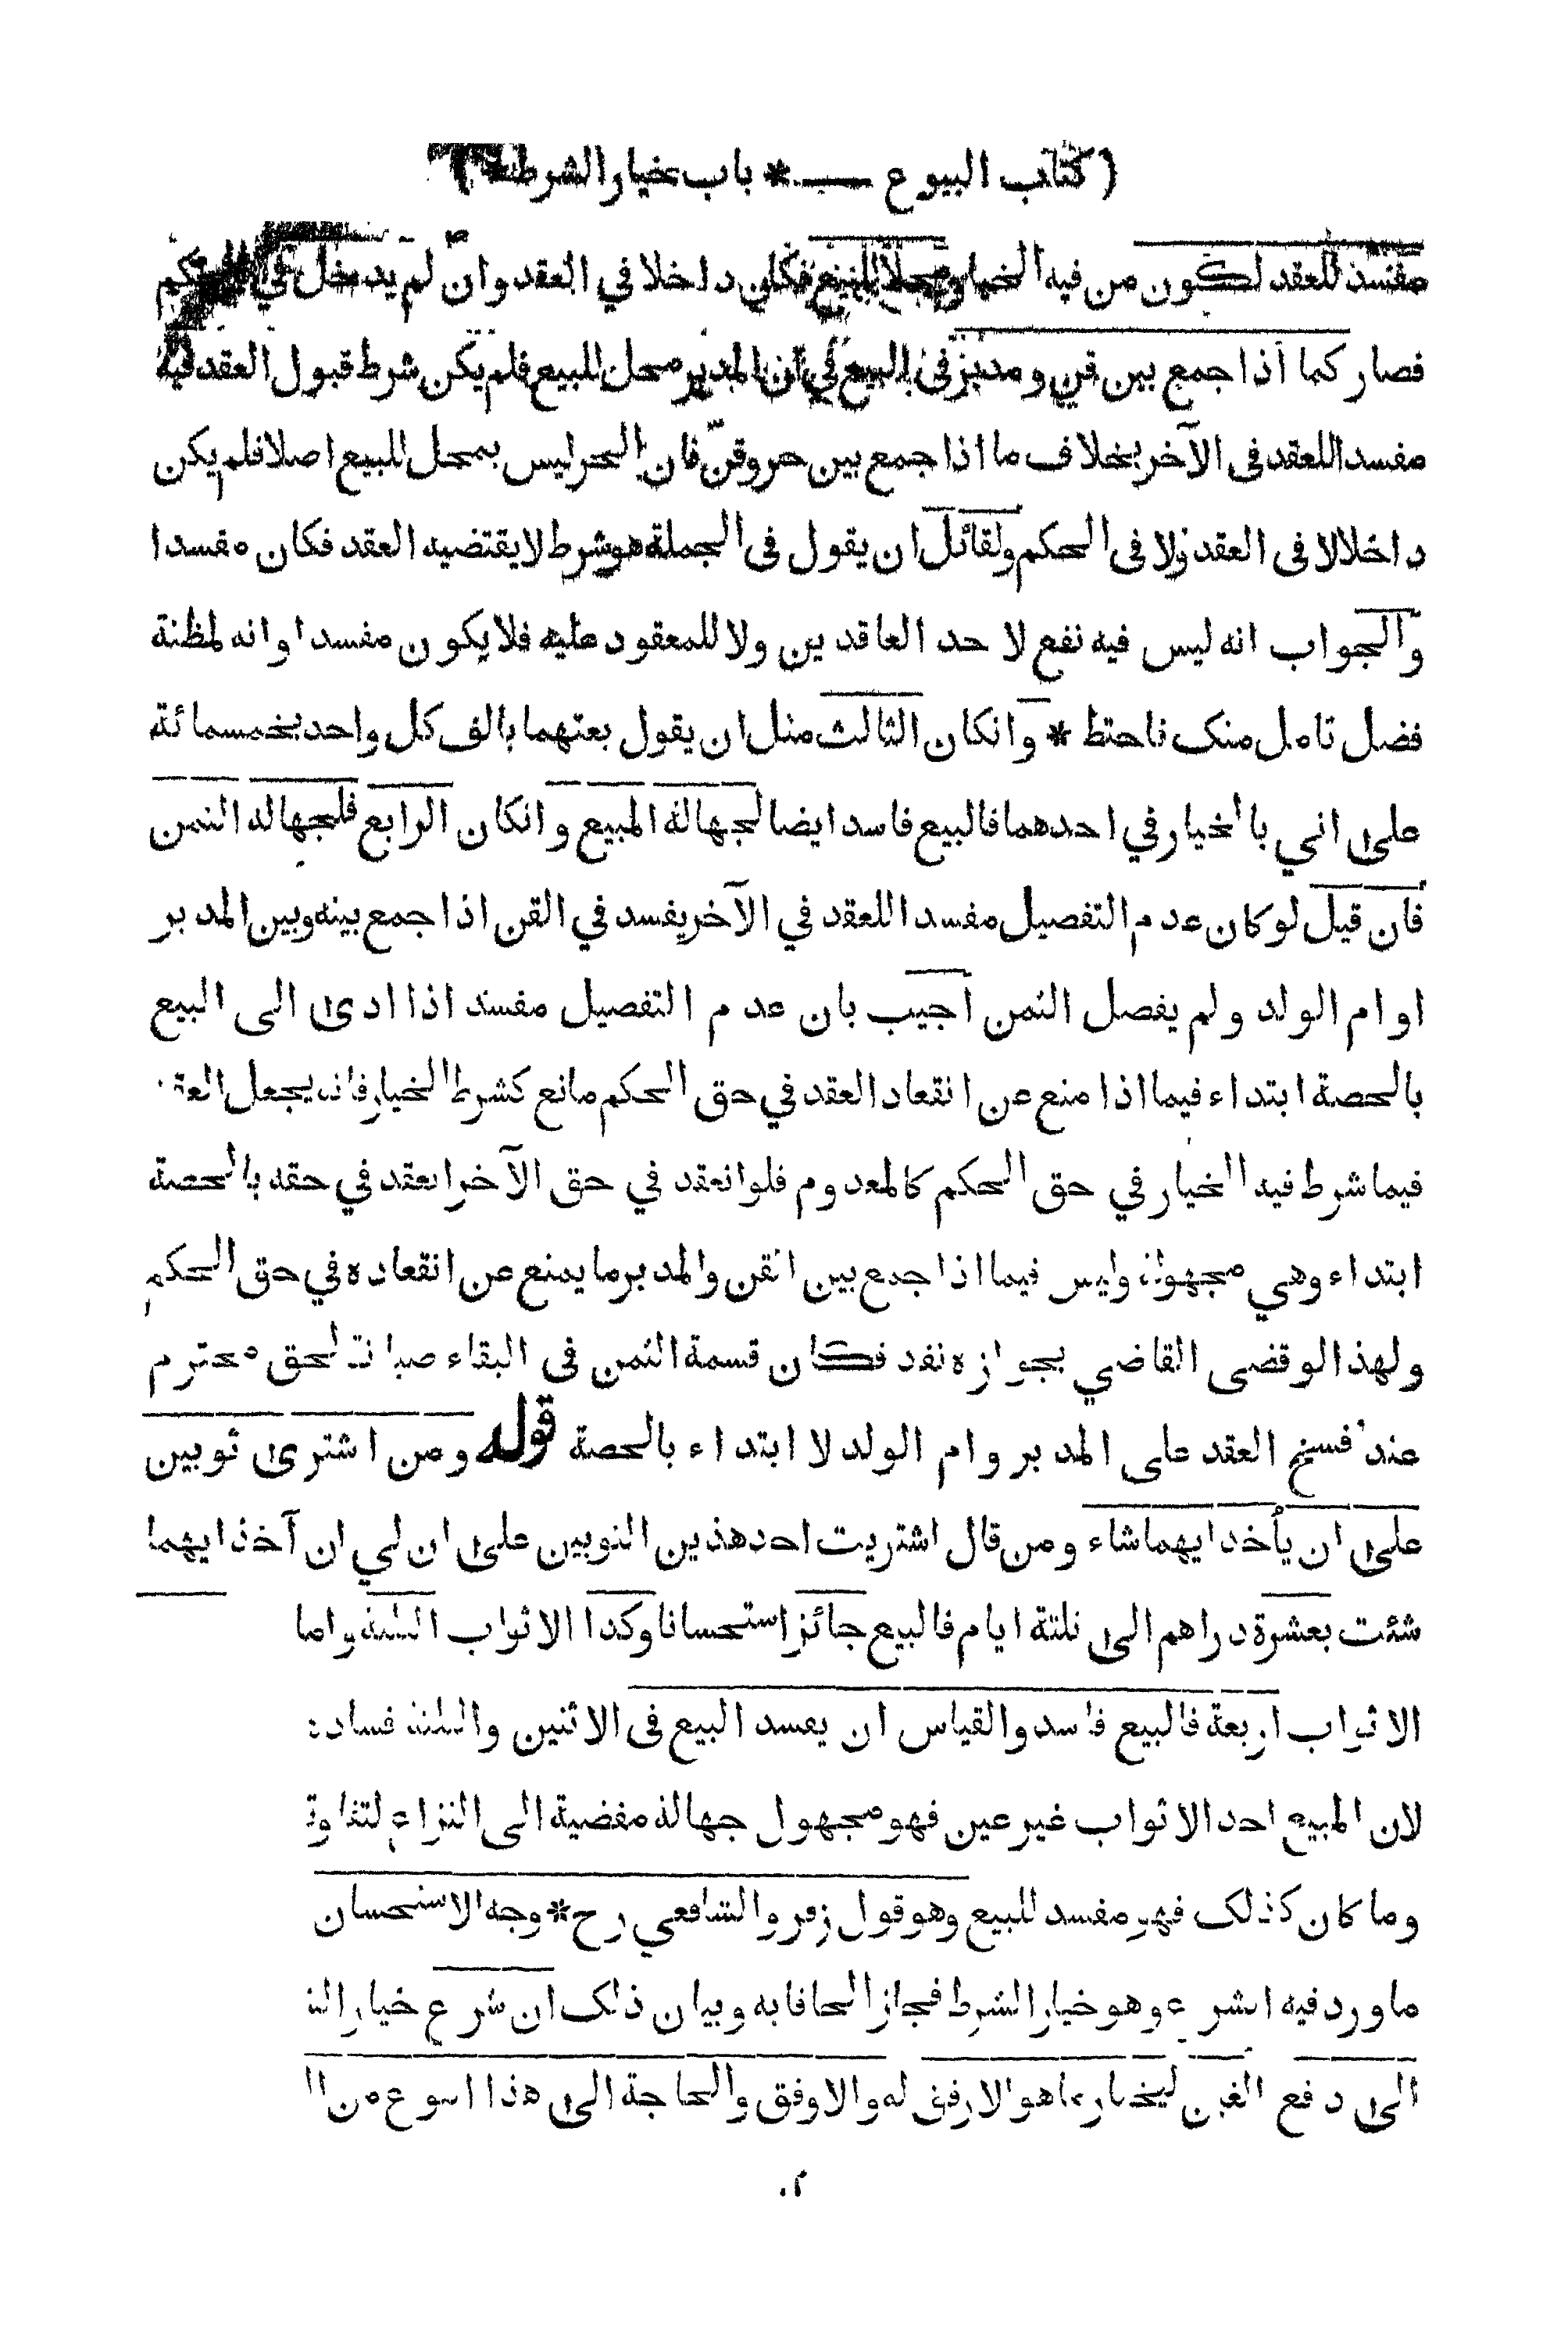 ( كتاب البيوع — * باب خيار الشرط )
مفسد للعقد لكون من فيه الخيار محلا للبيع فكان داخلا في العقد وان لم يدخل في الحكم
فصار كما اذا جمع بين قن ومدبر فى البيع في ان المدبر محل للبيع فلم يكن شرط قبول العقد فيه
مفسدا للعقد فى الآخر بخلاف ما اذا جمع بين حر وقنّ فان الحر ليس بمحل للبيع اصلا فلم يكن
داخلا لا فى العقد ولا فى الحكم ولقائل ان يقول فى الجملة هو شرط لا يقتضيه العقد فكان مفسدا
والجواب انه ليس فيه نفع لاحد العاقدين ولا للمعقود عليه فلا يكون مفسدا وانه لمظنة
فضل تامل منك فاحتط * وانكان الثالث مثل ان يقول بعتهما بالف كل واحد بخمسمائة
على اني بالخيار في احدهما فالبيع فاسد ايضا لجهالة المبيع وانكان الرابع فلجهالة الثمن
فان قيل لو كان عدم التفصيل مفسدا للعقد في الآخر يفسد في القن اذا جمع بينه وبين المدبر
او ام الولد ولم يفصل الثمن اجيب بان عدم التفصيل مفسد اذا ادى الى البيع
بالحصة ابتداء فيما اذا منع عن انقعاد العقد في حق الحكم مانع كشرط الخيار فانه يجعل العقد
فيما شرط فيه الخيار في حق الحكم كالمعدوم فلو انعقد في حق الآخر انعقد في حقه بالحصة
ابتداء وهي مجهولة وليس فيما اذا جمع بين القن والمدبر ما يمنع عن انقعاده في حق الحكم
ولهذا لو قضى القاضي بجوازه نفد فكان قسمة الثمن فى البقاء صيانة لحق محترم
عند فسخ العقد على المدبر وام الولد لا ابتداء بالحصة قوله ومن اشترى ثوبين
على ان يأخذ ايهما شاء ومن قال اشتريت احد هذين الثوبين على ان لي ان آخذ ايهما
شئت بعشرة دراهم الى ثلثة ايام فالبيع جائز استحسانا وكذا الاثواب الثلثة واما
الاثواب اربعة فالبيع فاسد والقياس ان يفسد البيع فى الاثنين والثلثة فساد
لان المبيع احد الاثواب غير عين فهو مجهول جهالة مفضية الى النزاع لتفاوت
وما كان كذلك فهو مفسد للبيع وهو قول زفر والشافعي رح * وجه الاستحسان
ما ورد فيه الشرع وهو خيار الشرط فجاز الحاقا به وبيان ذلك ان شرع خيار
الى دفع الغبن ليختار ما هو الارفق له والاوفق والحاجة الى هذا النوع من